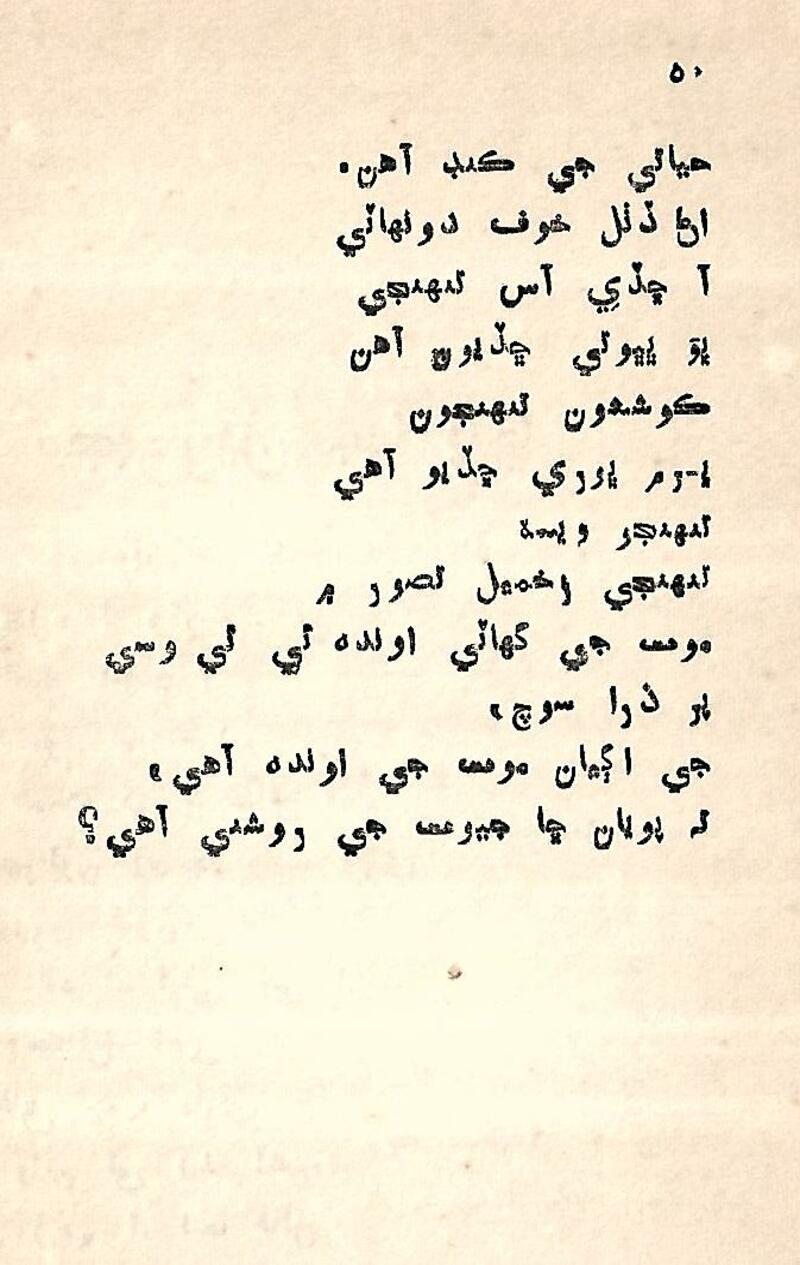 ٥٠
حياتي جي ڪنڊ آهن.
اڻ ڏٺل خوف دونهاٽي
آ ڇڏي آس تنهنجي
ٻوٽي ڇڏيون آهن
ڪوششون تنهنجون
ٻوري ڇڏيو آهي
تنهنجو
تنهنجي زخميل تصور ۾
موت جي گهاٽي اونده ٿي ٿي وسي
پر ذرا سوچ،
جي اڳيان موت جي اونده آهي،
ته پويان ڇا جيوت جي روشني آهي؟